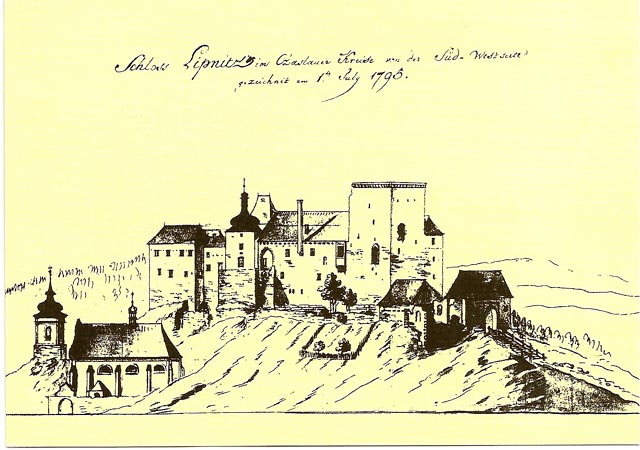 Schloss Lipnitz im Czaslauer Kreise von der Süd-Westseite
gezeichnet am 1t July 1795.